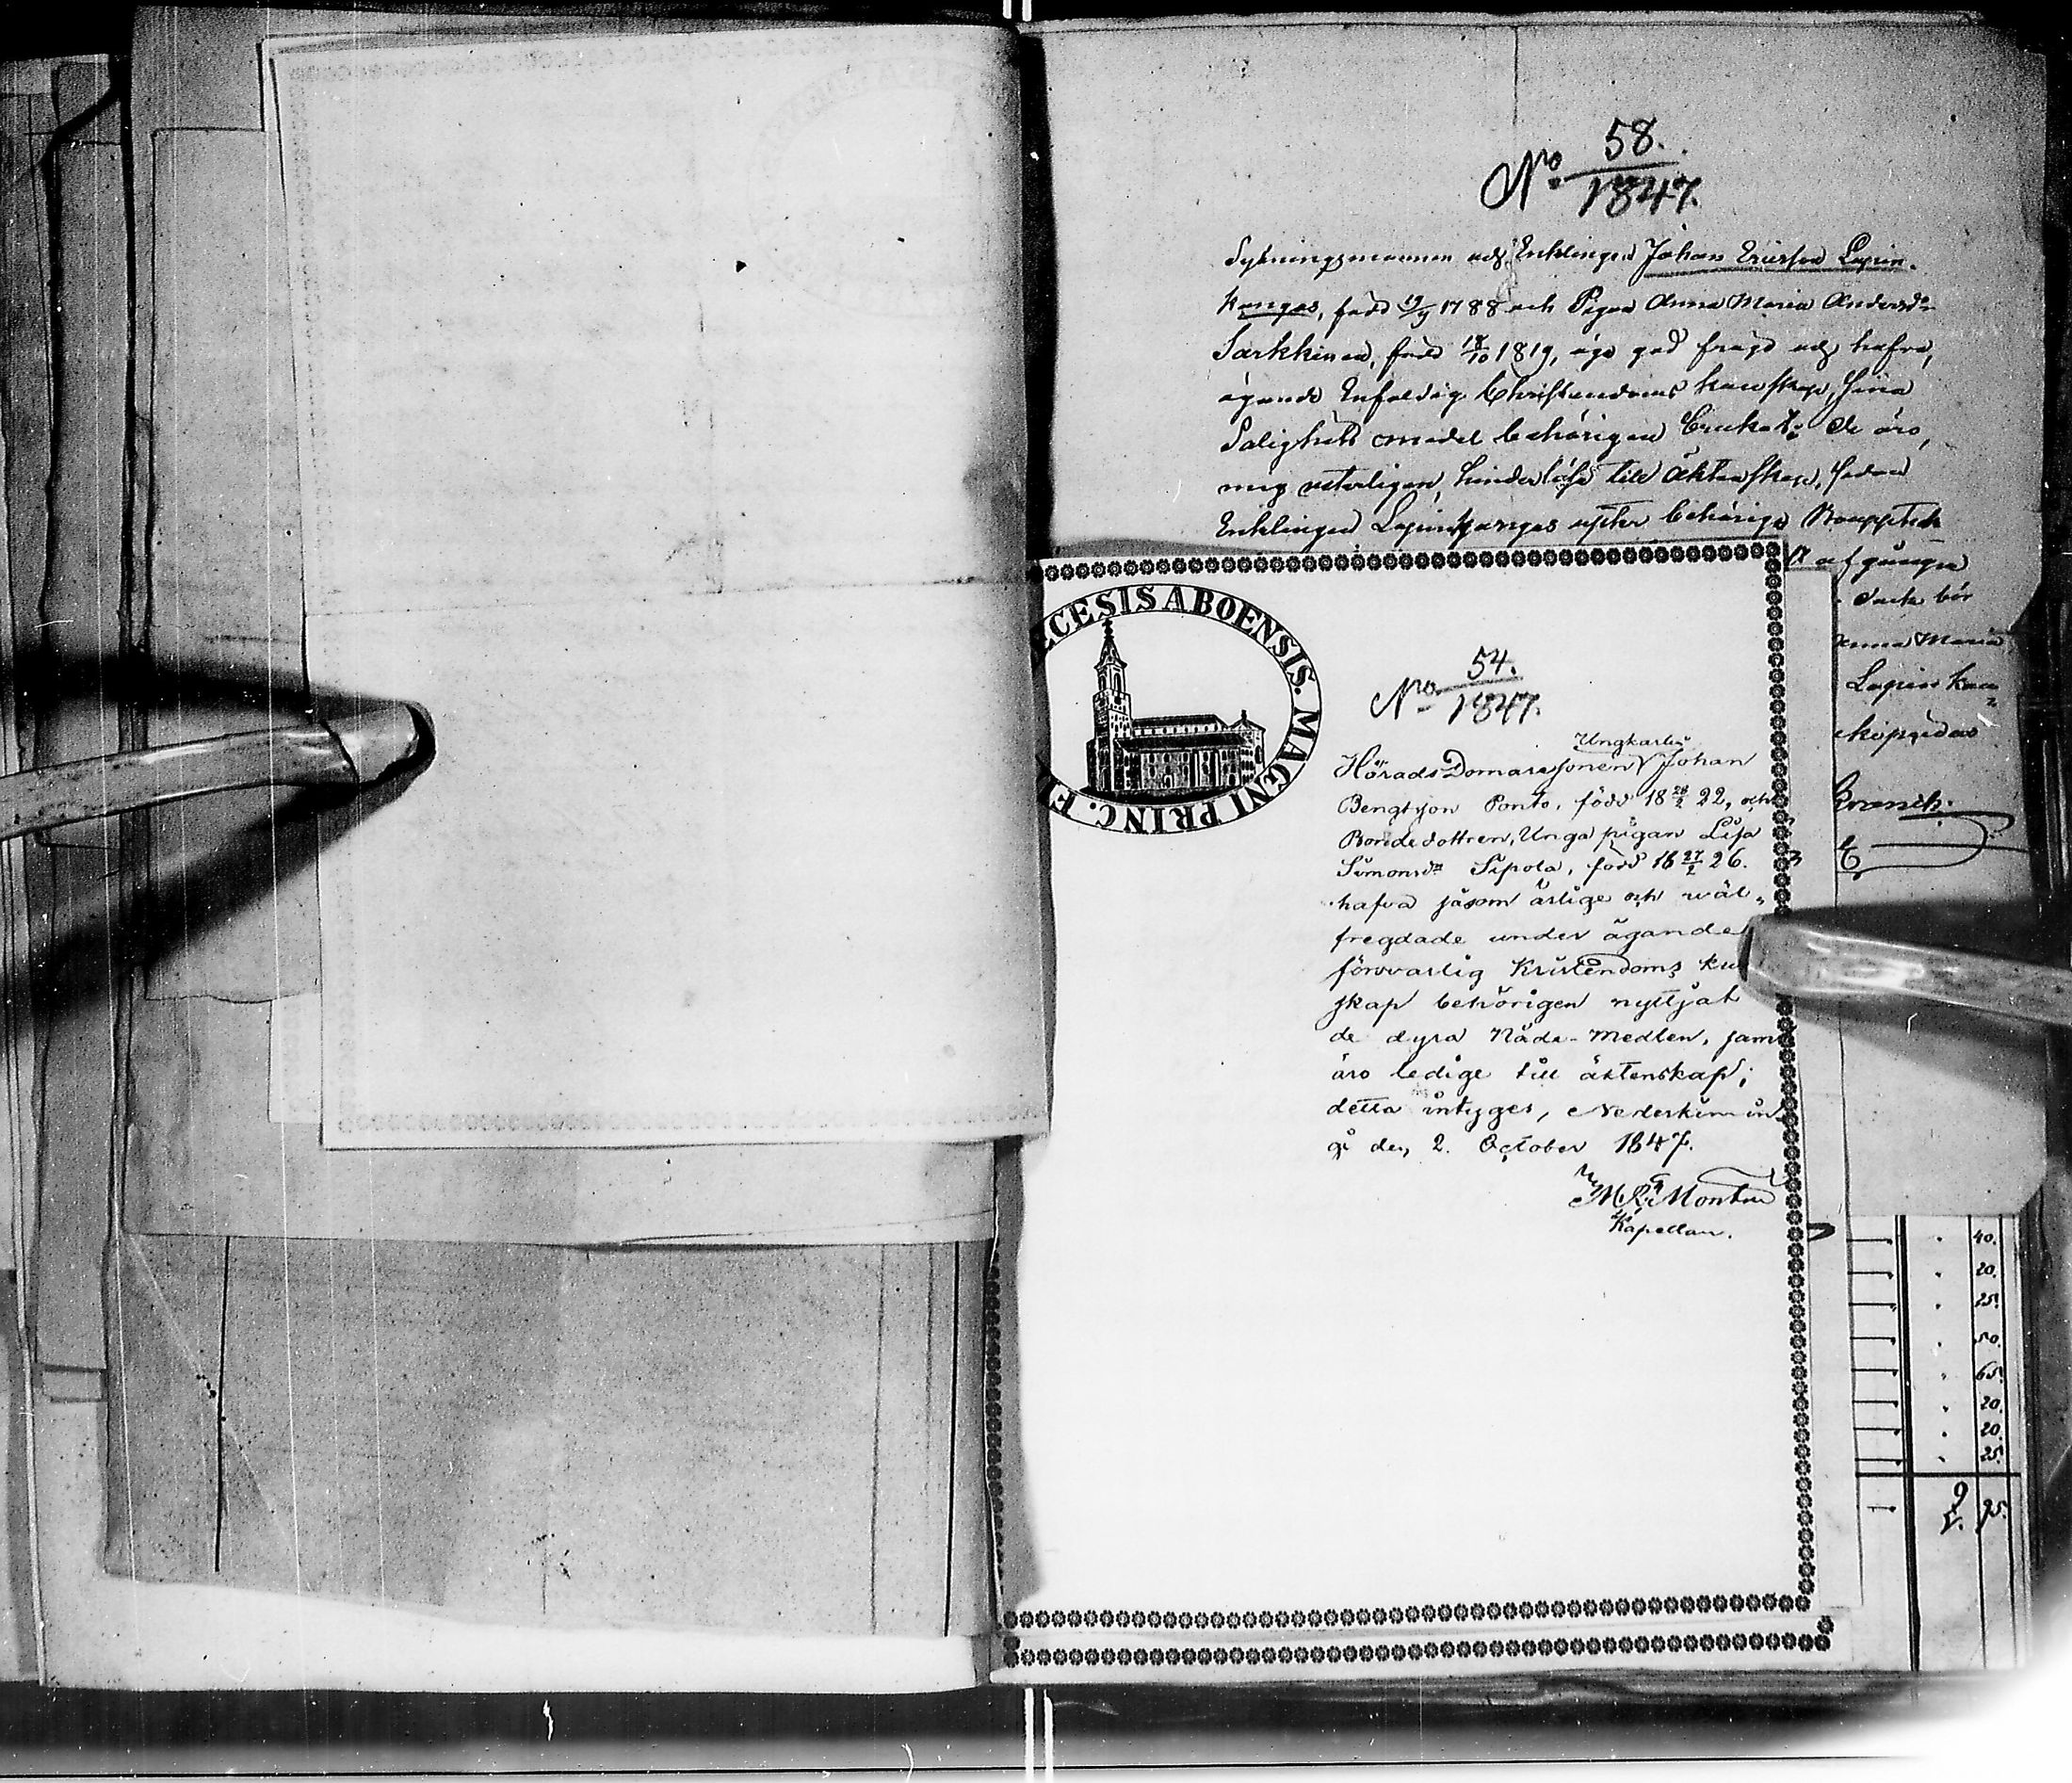 No 58.
1847.
Sytningsmannen och Enklingen Johan Ericsson Lapin-
kangas, född 19/9 1788 och Pigan Anna Maria Andersdr
Sarkkinen, född 18/10 1819, äga god frägd och hafva,
ägande Enfaldig Christendoms kunskap, sina
Salighets medel behörigen brukat; De äro,
mig veterligen, hinderlöse till Äktenskap, sedan
Enklingen Lapinkangas efter behörige
af gången
Anna Maria
Lapin kan
DIOECESIS ABOENSIS. MAGNI PRINC. FI
No 54.
1847.
Ungkarlen
Härads Domaresonen Johan
Bengtson Ponto, född 18 28/2 22, och
Bondedottren, Unga pigan Lisa
Simonsdr Sipola, född 18 27/2 26.
hafva såsom ärlige och wäl-
fregdade under ägande
försvarlig Kristendoms kun
skap behörigen nyttjat
de dyra Nåde-Medlen, samt
äro ledige till äktenskap;
detta intyges, Nederkimin
gi den 2. October 1847.
Montin
Kapellan.
40.
20.
25.
50.
65.
20.
20.
25.
95.